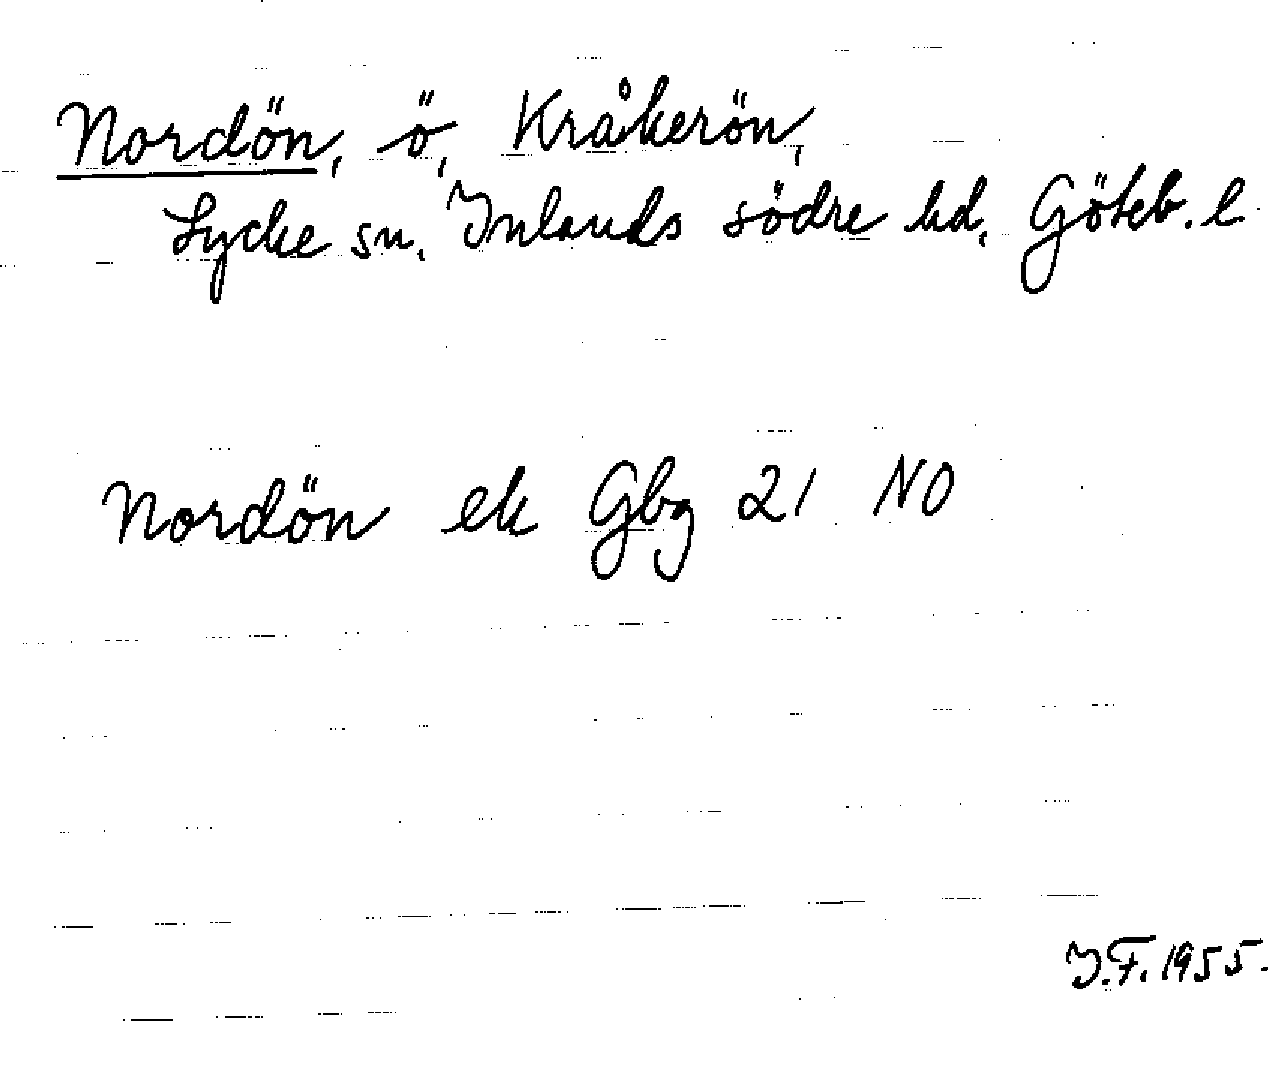 Nordön, ö, Kråkerön,
Lycke sn, Inlands södre hd, Göteb. l
Nordön ek Gbg 21 NO
I.F. 1955.